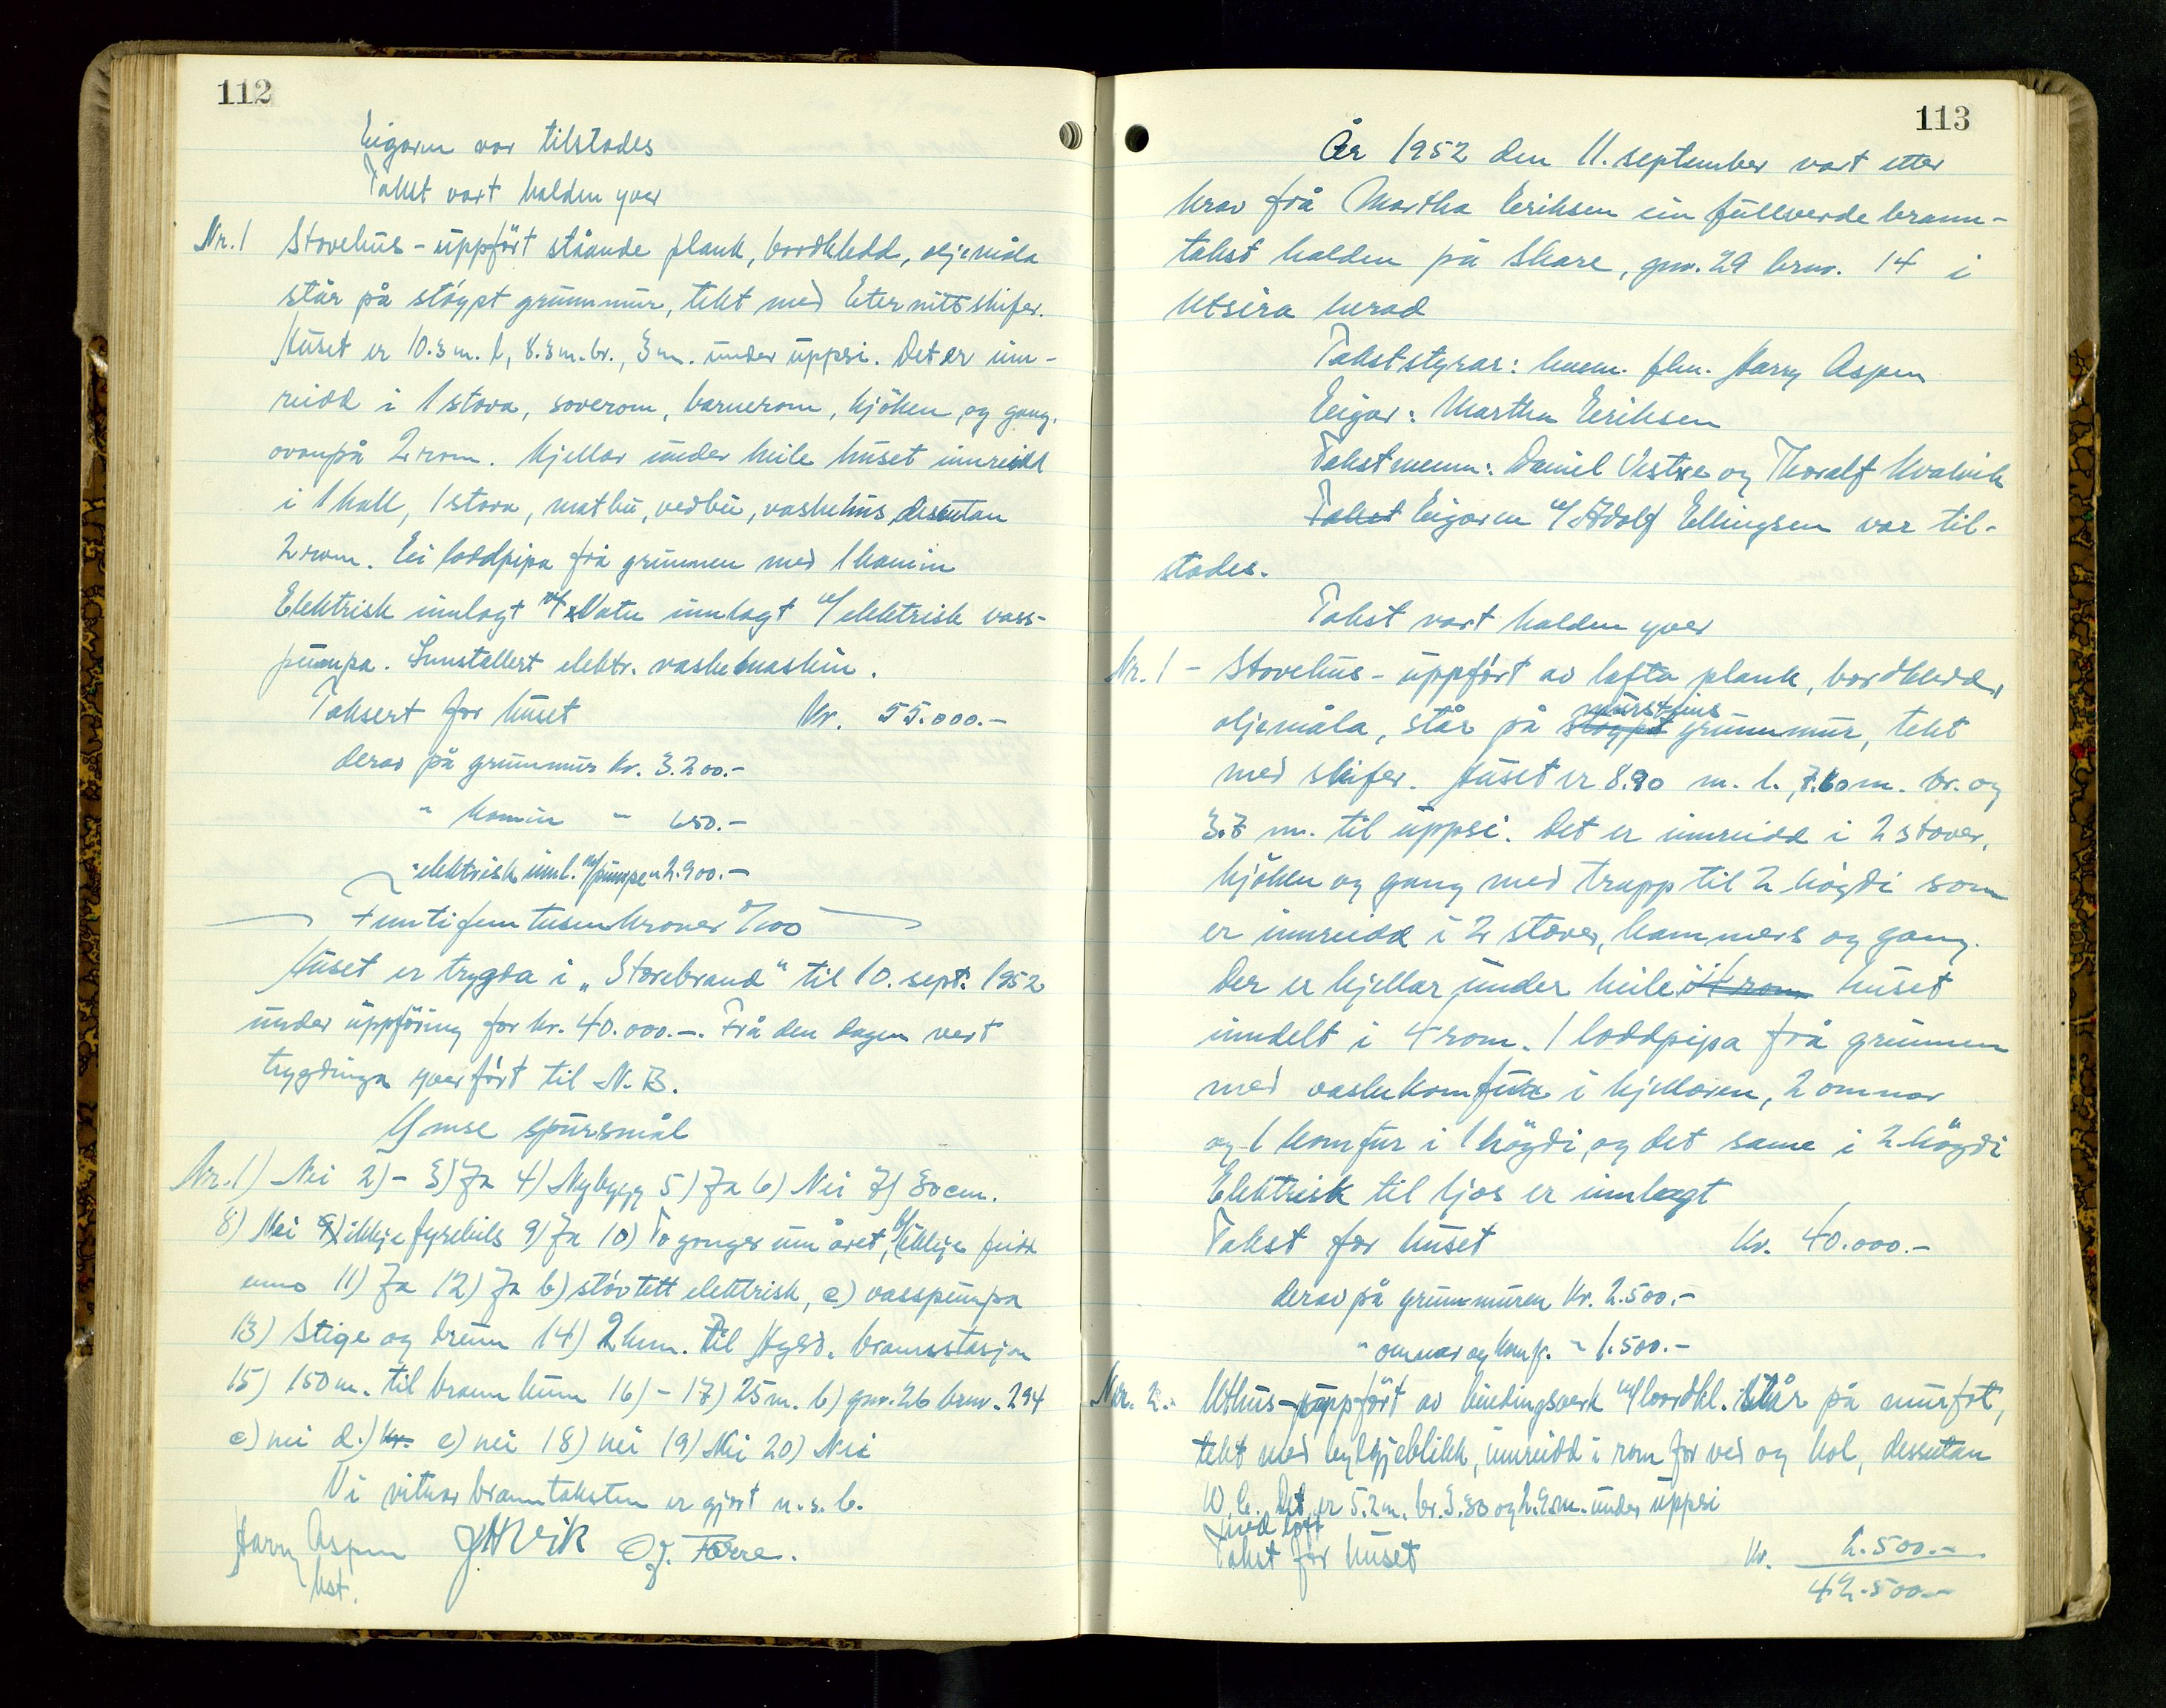 112
Eigaren var tilstades
Takst vart halden yver
Nr. 1 Stovehus - uppført ståande plank, bordkledd, oljemåla
står på støypt grunnmur, tekt med Eternittskifer.
Huset er 10.3 m. l, 8.3 m. br., 3 m. under uppsi. Det er inn-
reidd i 1 stova, soverom, barnerom, kjøken og gang.
ovanpå 2 rom. Kjellar under heile huset innreidd
i 1 hall, 1 stova, matbu, vedbu, vaskehus, dessutan
2 rom. Ei loddpipa frå grunnen med 1 kamin
Elektrisk innlagt Vatn innlagt m/ elektrisk vass-
pumpa. Innstallert elektr. vaskemaskin.
Taksert for huset Kr. 55.000.-
derav på grunnmur kr. 3.200.-
" kamin " 650.-
" elektrisk innl. m/pumpe " 2.900.-
Femtifemtusenkroner 0/100
Huset er trygda i "Storebrand" til 10. sept. 1952
under uppføring for kr. 40.000.-. Frå den dagen vert
trygdinga yverført til N. B.
Ymse spursmål
Nr. 1) Nei 2) - 3) Ja 4) Nybygg 5) Ja 6) Nei 7) 30 cm.
8) Nei ikkje fyrehus 9) Ja 10) To gonger um året, b) ikkje feidd
enno 11) Ja 12) Ja b) støvtett elektrisk, c) vasspumpa
13) Stige og brunn 14) 2 km. til Hgsd. brannstasjon
15) 150 m. til brannkum 16) - 17) 25 m. b) gnr. 26 brnr. 294
c) nei d.) kr. e) nei 18) nei 19) Nei 20) Nei
Vi vitnar branntaksten er gjort u. s. b.
Harry Aspen J. H. Vik O. J. Førre.
kst.
113
År 1952 den 11. september vart etter
krav frå Martha Eriksen ein fullverde brann-
takst halden på Skare, gnr. 29 brnr. 14 i
Utsira herad
Takststyrar: lensm. fllm. Harry Aspen
Eigar: Martha Eriksen
Takstmenn: Daniel Vestre og Thoralf Kvalvik
Takst Eigaren v/ Adolf Ellingsen var til-
stades.
Takst vart halden yver
Nr. 1 - Stovehus - uppført av lafta plank, bordkledd,
mursteins
oljemåla, står på støypt grunnmur, tekt
med skifer. Huset er 8.90 m. l., 7.60 m. br. og
3.7 m. til uppsi. Det er innreidd i 2 stover,
kjøken og gang med trapp til 2 høgdi som
er innreidd i 2 stover, kammers og gang.
Der er kjellar under heile i 4 rom huset
inndelt i 4 rom. 1 loddpipa frå grunnen
med vaskekomfur i kjellaren, 2 omnar
og 1 komfur i 1 høgdi, og det same i 2 høgdi
Elektrisk til ljos er innlagt
Takst for huset Kr. 40.000.-
derav på grunnmuren Kr. 2.500.-
" omnar og komf. " 1.500.-
Nr. 2. Uthus - uppført av bindingsverk m/bordkl. står på murfot,
tekt med bylgjeblikk, innreidd i rom for ved og kol, dessutan
W. C. Det er 5.2 m. br. 3.30 og 2.9 m. under uppsi
med loft
Takst for huset Kr. 2.500.-
42.500.-